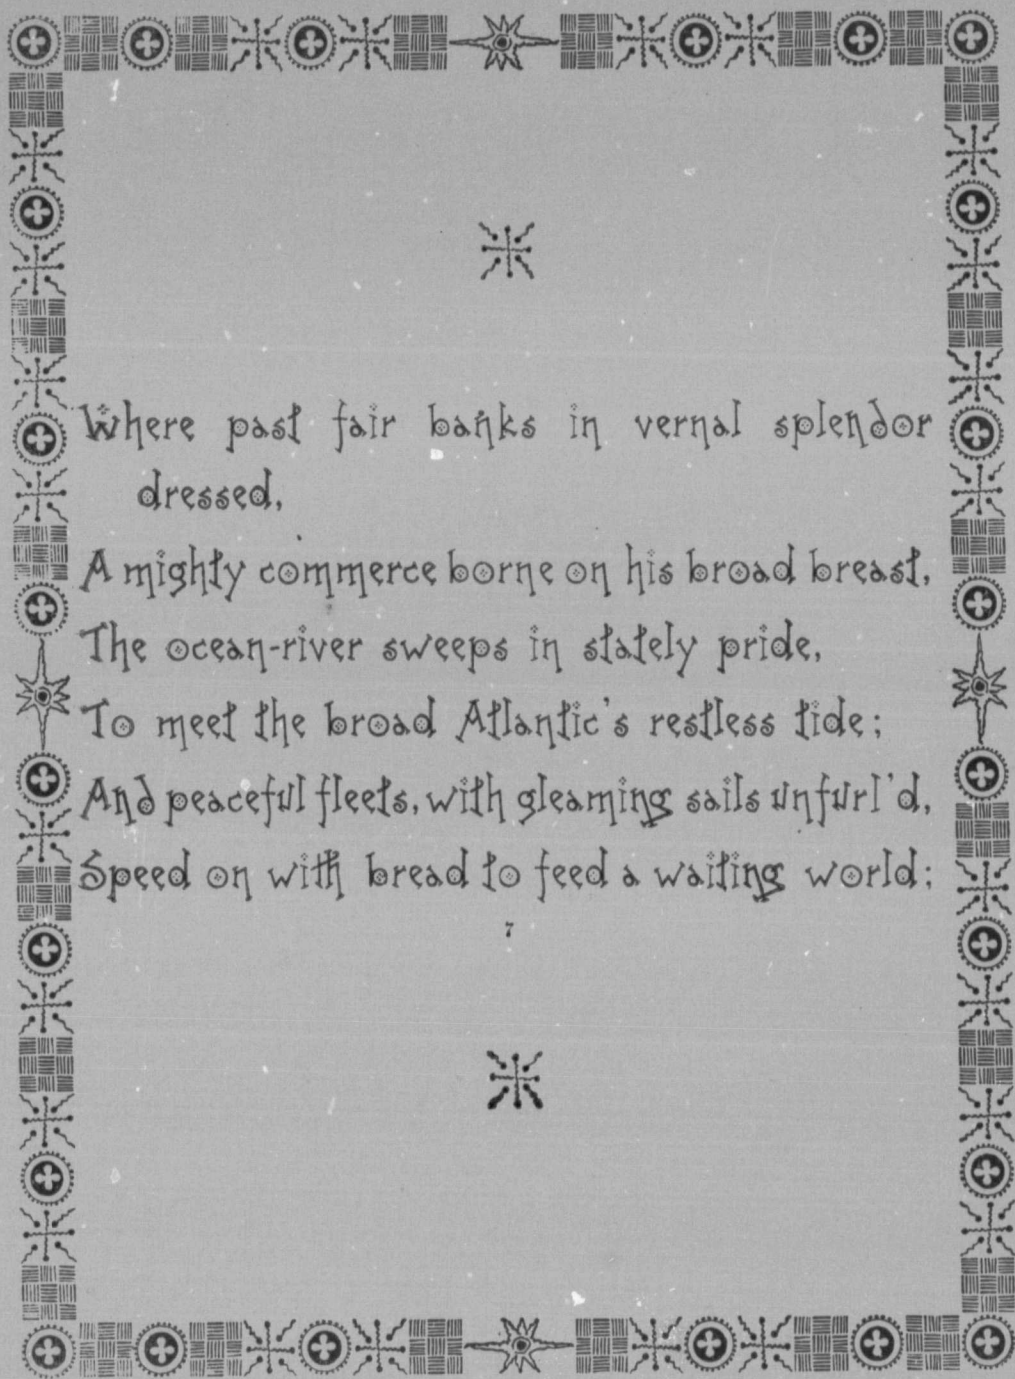 Where past fair banks in vernal splendor
dressed,
A mighty commerce borne on his broad breast,
The ocean-river sweeps in stately pride,
To meet the broad Atlantic's restless tide;
And peaceful fleets, with gleaming sails unfurl'd,
Speed on with bread to feed a waiting world;
7